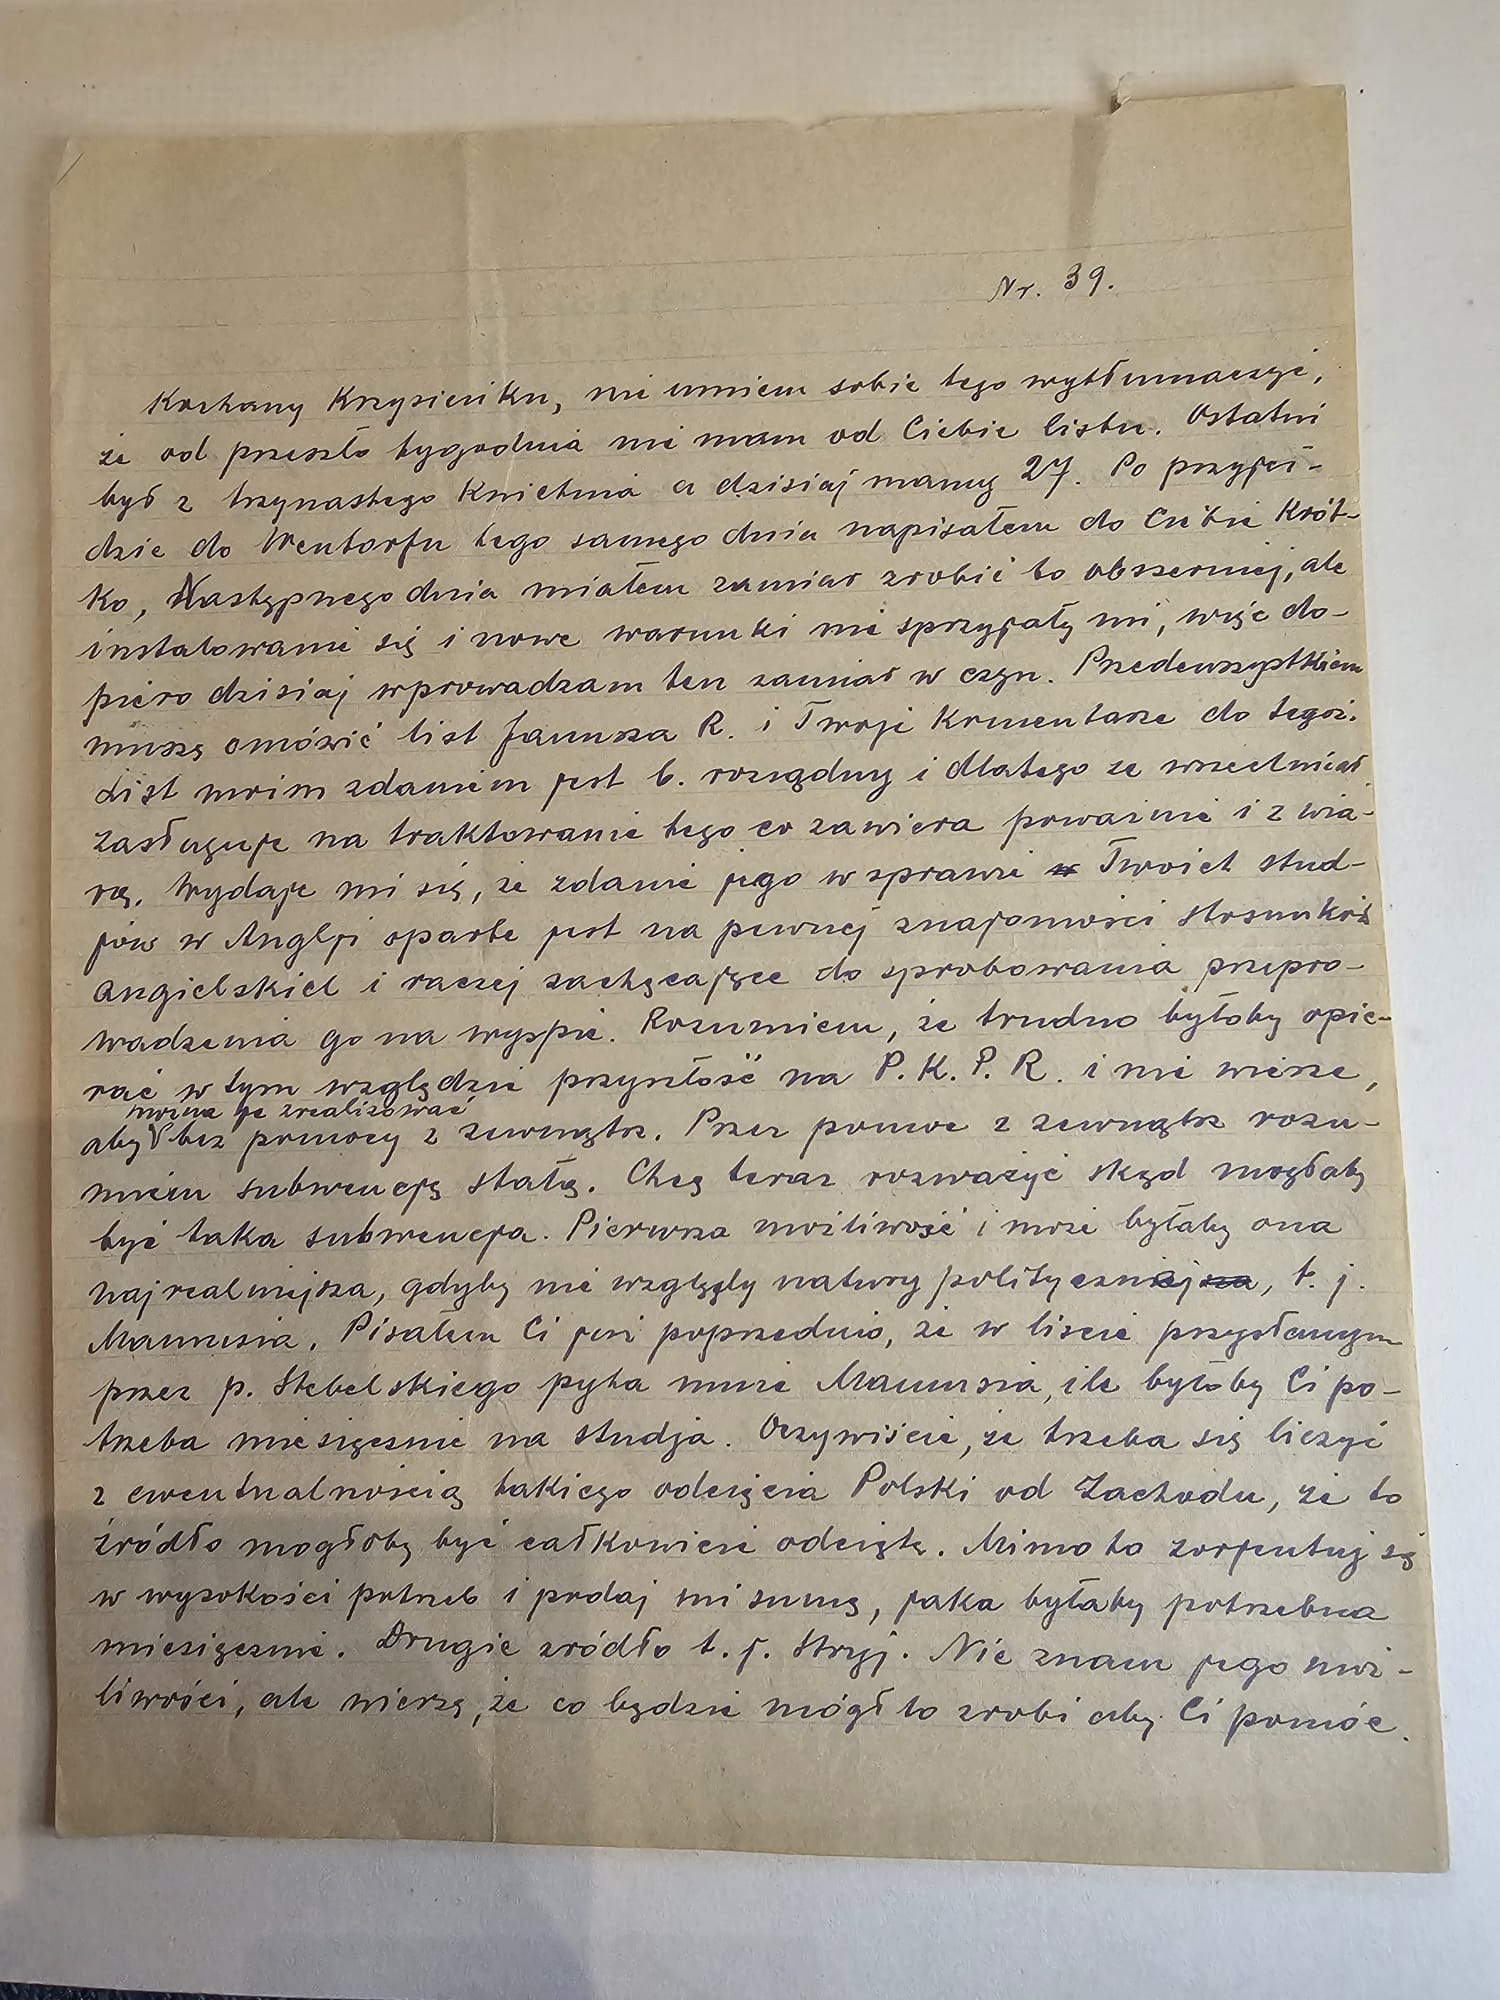 Nr. 39.
Kochany Krzysieńku, nie umiem sobie tego wytłumaczyć,
że od przeszło tygodnia nie mam od Ciebie listu. Ostatni
był z trzynastego kwietnia a dzisiaj mamy 27. Po przyjeź-
dzie do Wentorfu tego samego dnia napisałem do Ciebie krót-
ko, Następnego dnia miałem zamiar zrobić to obszerniej, ale
instalowanie się i nowe warunki nie sprzyjały mi, więc do-
piero dzisiaj wprowadzam ten zamiar w czyn. Przedewszystkiem
muszę omówić list Janusza R. i Twoje komentarze do tegoż.
List moim zdaniem jest b. rozsądny i dlatego ze wszechmiar
zasługuje na traktowanie tego co zawiera poważnie i z wia-
rą. Wydaje mi się, że zdanie jego w sprawie Twoich stud-
jów w Anglji oparte jest na pewnej znajomości stosunków
angielskich i raczej zachęcające do sprobowania przepro-
wadzenia go na wyspie. Rozumiem, że trudno byłoby opie-
rać w tym względzie przyszłość na P. K. P. R. i nie wierzę,
można je zrealizować
aby bez pomocy z zewnątrz. Przez pomoc z zewnątrz rozu-
miem subwencję stałą. Chcę teraz rozważyć skąd mogłaby
być taka subwencja. Pierwsza możliwość i może byłaby ona
najrealniejsza, gdyby nie względy natury politycznej, t. j.
Mamusia. Pisałem Ci już poprzednio, że w liście przysłanym
przez p. Stebelskiego pyta mnie Mamusia, ile byłoby Ci po-
trzeba miesięcznie na studja. Oczywiście, że trzeba się liczyć
z ewentualnością takiego odcięcia Polski od Zachodu, że to
źródło mogłoby być całkowicie odcięte. Mimo to zorjentuj się
w wysokości potrzeb i podaj mi sumę, jaka byłaby potrzebna
miesięcznie. Drugie źródło t. j. Stryj. Nie znam jego moż-
liwości, ale wierzę, że co będzie mógł to zrobi aby Ci pomóc.